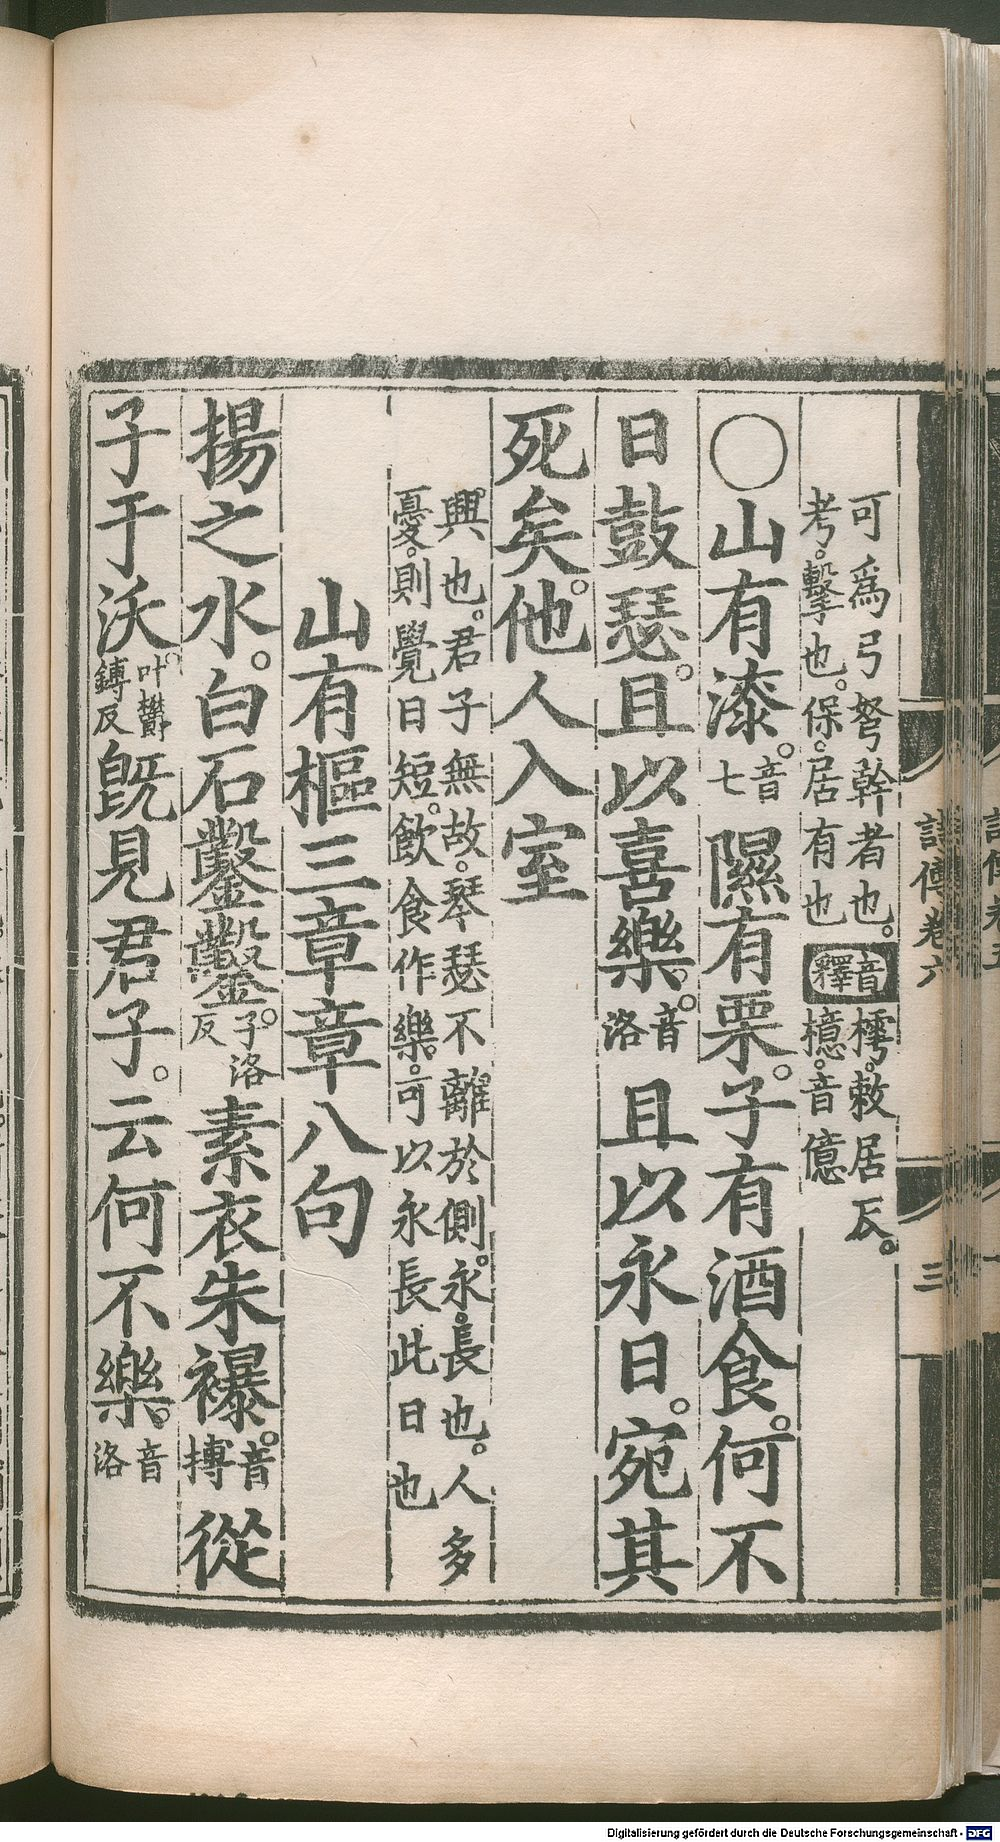 可爲弓弩幹者也。
考。擊也。保。居有也
音釋
樗。敕居反。
檍。音億
○山有漆。音七隰有栗。子有酒食。何不
日鼓瑟。且以喜樂。音洛且以永日。宛其
死矣。他人入室
興也。君子無故。琴瑟不離於側。永。長也。人多
憂。則覺日短。飲食作樂。可以永長此日也
山有樞三章章八句
揚之水。白石鑿鑿。子洛反素衣朱襮。音博從
子于沃。叶鬱鎛反旣見君子。云何不樂。音洛
詩傳卷六
三
Digitalisierung gefördert durch die Deutsche Forschungsgemeinschaft - DFG